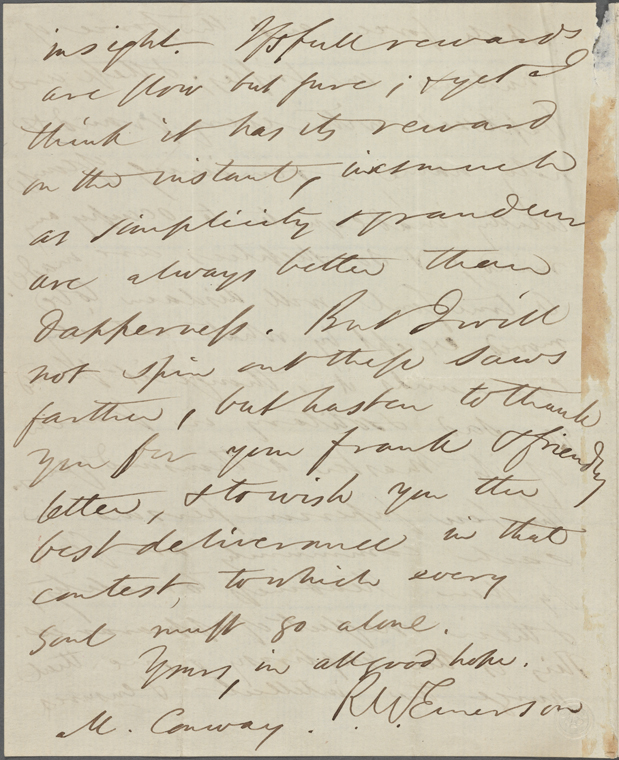 insight. Its full rewards
are slow but sure; & yet I
think it has its reward
on the instant, inasmuch
as simplicity & grandeur
are always better than
dapperness. But I will
not spin out these saws
farther, but hasten to thank
you for your frank & friendly
letter, & to wish you the
best deliverance in that
contest, to which every
soul must go alone.
Yours, in all good hope.
R. W. Emerson
M. Conway.